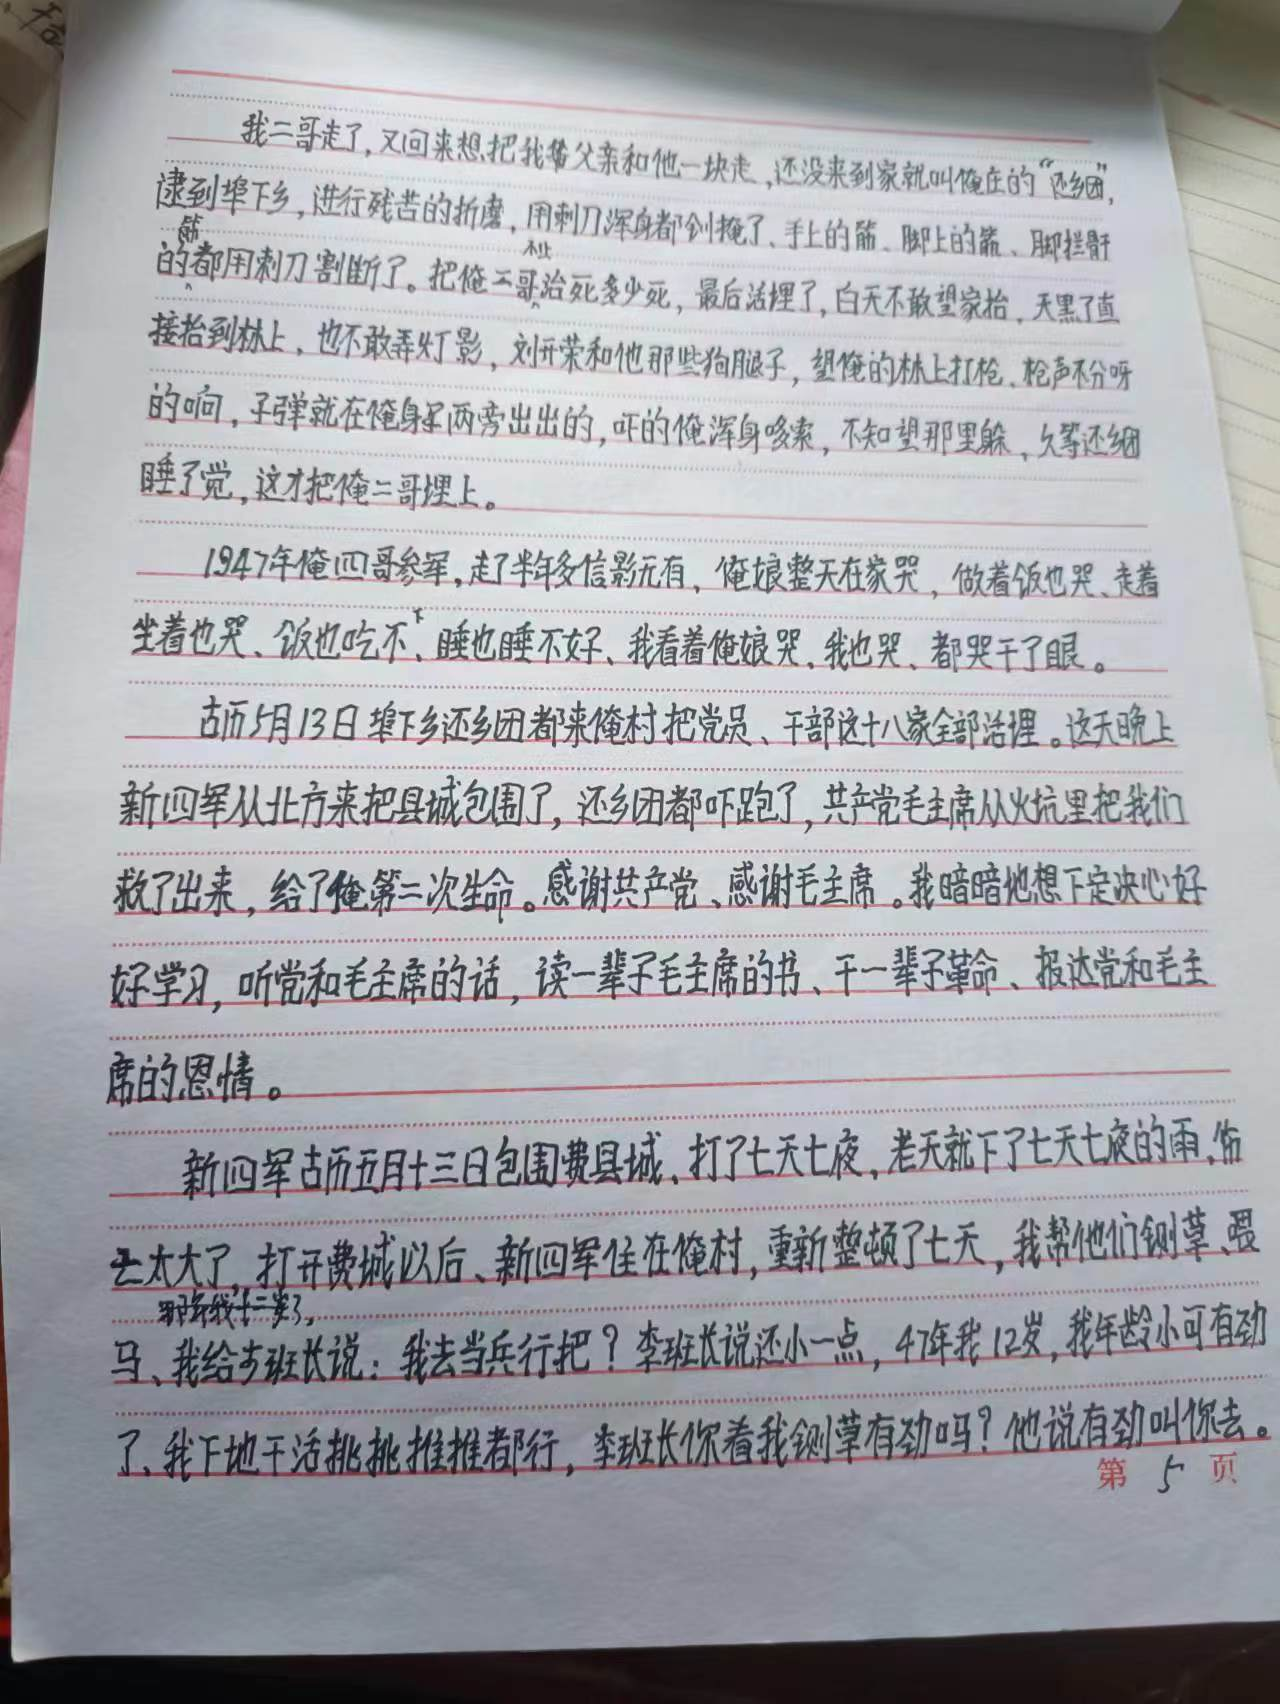 我二哥走了，又回来想把我爷父亲和他一块走，还没来到家就叫俺庄的“还乡团”，
逮到埠下乡，进行残苦的折磨，用刺刀浑身都刽掩了、手上的筋、脚上的筋、脚拦骭
筋
的都用刺刀割断了。把俺二哥治死多少死，最后活埋了，白天不敢望家抬，天黑了直
不止
接抬到林上，也不敢弄灯影，刘开荣和他那些狗腿子，望俺的林上打枪、枪声不分呀
的响，子弹就在俺身子两旁出出的，吓的俺浑身哆索，不知望那里躲，久等还乡团
睡了觉，这才把俺二哥埋上。
1947年俺四哥参军，走了半年多信影无有，俺娘整天在家哭，做着饭也哭、走着
坐着也哭、饭也吃不下、睡也睡不好、我看着俺娘哭、我也哭、都哭干了眼。
古历5月13日埠下乡还乡团都来俺村把党员、干部这十八家全部活埋。这天晚上
新四军从北方来把县城包围了，还乡团都吓跑了，共产党毛主席从火坑里把我们
救了出来，给了俺第二次生命。感谢共产党、感谢毛主席。我暗暗地想下定决心好
好学习，听党和毛主席的话，读一辈子毛主席的书、干一辈子革命、报达党和毛主
席的恩情。
新四军古历五月十三日包围费县城、打了七天七夜，老天就下了七天七夜的雨，伤
亡太大了，打开费城以后、新四军住在俺村，重新整顿了七天，我帮他们铡草、喂
那年我十二岁了，
马、我给李班长说：我去当兵行把？李班长说还小一点，47年我12岁，我年龄小可有劲
了、我下地干活挑挑推推都行，李班长你看我铡草有劲吗？他说有劲叫你去。
第 5 页